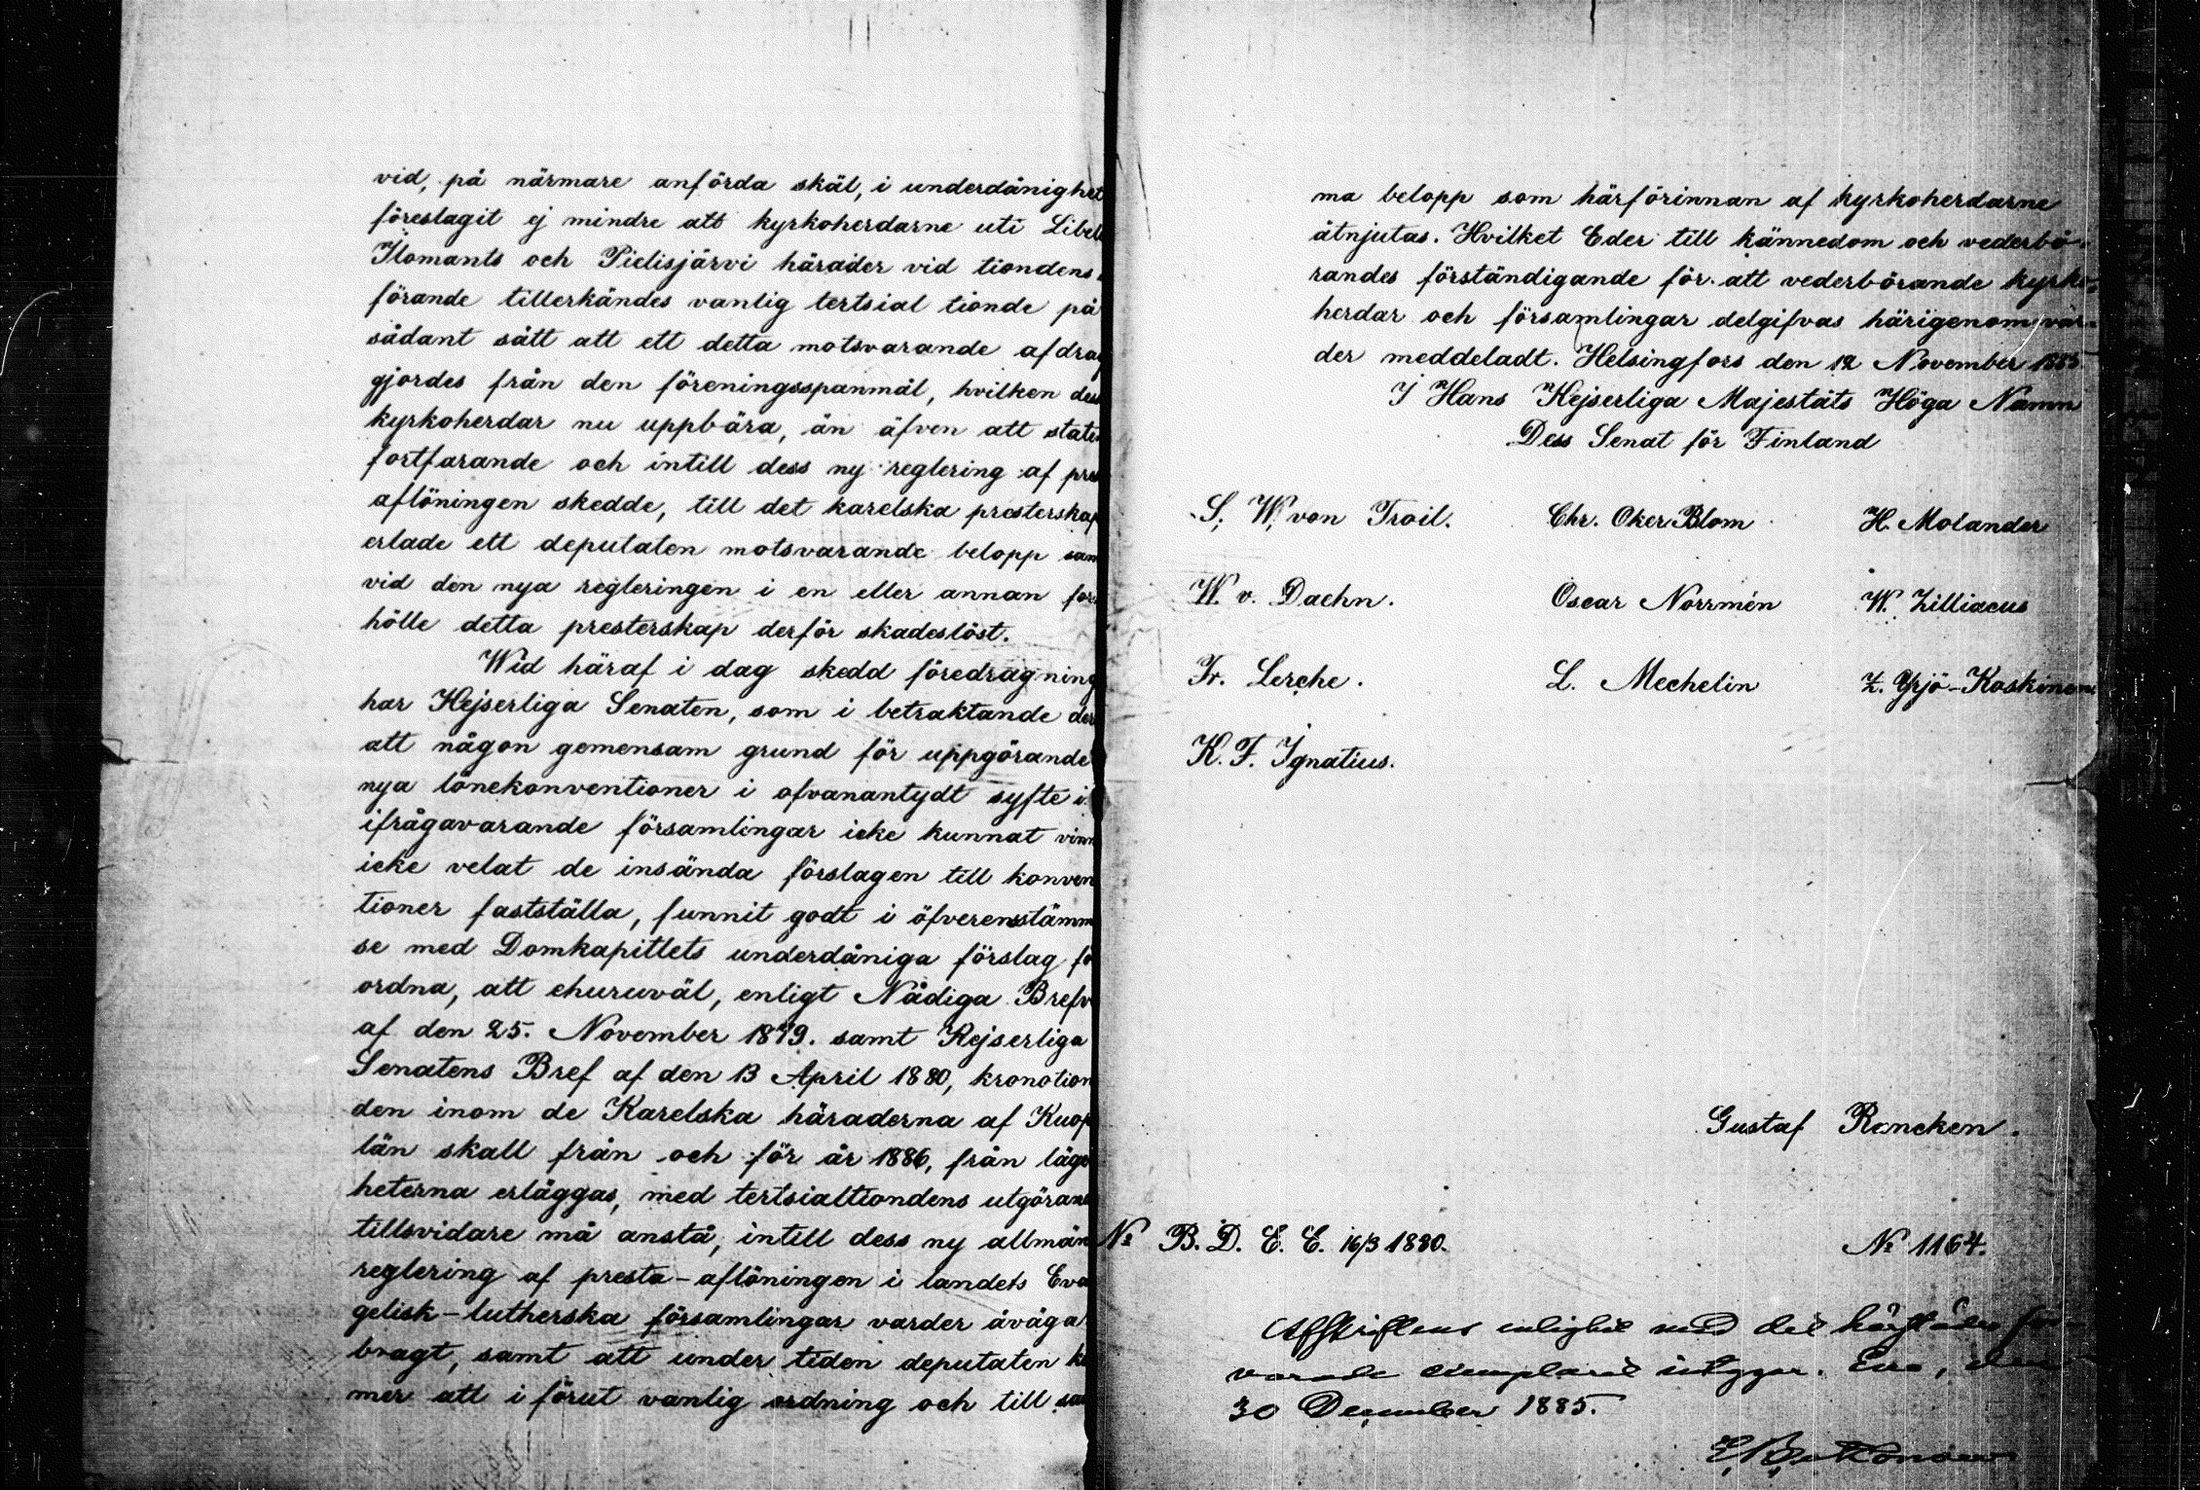 vid, på närmare anförda skäl, i underdånighet
föreslagit ej mindre att kyrkoherdarne uti Libel
Ilomants och Pielisjärvi härader vid tiondens
förande tillerkändes vanlig tertsial tionde på
sådant sätt att ett detta motsvarande afdrag
gjordes från den föreningsspanmål, hvilken dess
kyrkoherdar nu uppbära, än äfven att state
fortfarande och intill dess ny reglering af pres
aflöningen skedde, till det karelska presterskap
erlade ett deputaten motsvarande belopp sam
vid den nya regleringen i en eller annan for
hölle detta presterskap derför skadeslöst.
Wid häraf i dag skedd föredragning
har Kejserliga Senaten, som i betraktande der
att någon gemensam grund för uppgörande
nya lönekonventioner i ofvanantydt syfte i
ifrågavarande församlingar icke kunnat vinn
icke velat de insända förslagen till konven
tioner fastställa, funnit godt i öfverensstämm
se med Domkapitlets underdåniga förslag fö
ordna, att ehuruväl, enligt Nådiga Brefv
af den 25. November 1879. samt Kejserliga
Senatens Bref af den 13 April 1880, kronotion
den inom de Karelska häraderna af Kuop
län skall från och för år 1886, från läge
heterna erläggas, med tertsialtiondens utgörand
tillsvidare må anstå, intill dess ny allmän
reglering af presta-aflöningen i landets Eva
gelisk-lutherska församlingar varder åväga
bragt, samt att under tiden deputaten ko
mer att i förut vanlig ordning och till sam
ma belopp som härförinnan af kyrkoherdarne
åtnjutas. Hvilket Eder till kännedom och vederbö-
randes förständigande för att vederbörande kyrko-
herdar och församlingar delgifvas härigenom var-
der meddeladt. Helsingfors den 12 November 1885
I Hans Kejserliga Majestäts Höga Namn
Dess Senat för Finland
S. W. von Troil. Chr. Oker Blom H. Molander
W. v. Daehn. Oscar Norrmén W. Zilliacus
Fr. Lerche. L. Mechelin Z. Yrjö-Koskinen
K. F. Ignatius.
Gustaf Roncken.
No B. D. E. E. 16/3 1880. No 1164.
Afskriftens enlighet med det härstädes för
varade exemplaret intygar. Eno, den
30 December 1885.